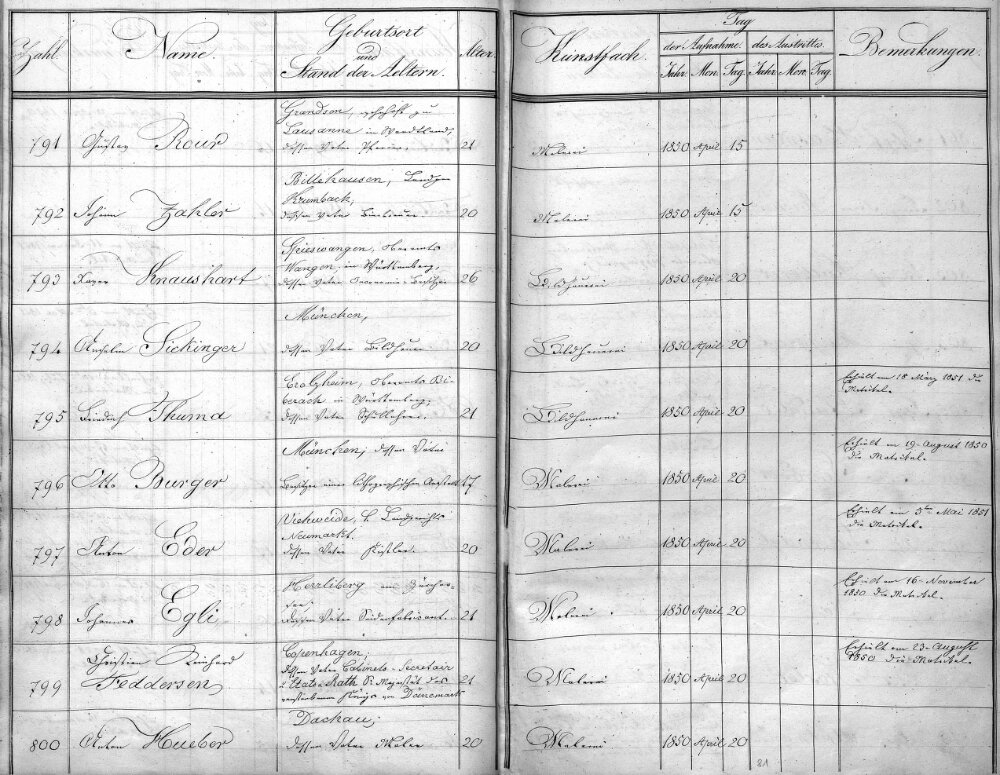 Zahl. Name. Geburtsort und Stand der Aeltern. Alter. Kunstfach. Tag der Aufnahme. des Austrittes. Bemerkungen.
Jahr. Mon. Tag. Jahr. Mon. Tag.
Grandson,
Lausanne im Waadtland,
791 Gustav Roux dessen Vater 21 Malerei 1850 April 15
Billehausen, Landger
Krumbach,
792 Johann Zahler dessen Vater 20 Malerei 1850 April 15
Oberamts
Wangen, in Württemberg,
793 Xaver Knaushart dessen Vater Oeconomie-Besitzer 26 Bildhauerei 1850 April 20
München,
794 Anselm Sickinger dessen Vater Bildhauer 20 Bildhauerei 1850 April 20
Erolzheim, Oberamts Bi- Erhielt am 18 März 1851 die
berach in Württemberg, Matrikel.
795 Thuma dessen Vater Schullehrer. 21 Bildhauerei 1850 April 20
München; dessen Vater Erhielt am 19. August 1850
die Matrikel.
796 Otto Burger Besitzer einer lithographischen Anstalt 17 Malerei 1850 April 20
Viehweide, k. Landgerichts Erhielt am 5ten Mai 1851
Neumarkt. die Matrikel.
797 Anton Eder dessen Vater 20 Malerei 1850 April 20
Herrliberg am Zürcher- Erhielt am 16. November
see, 1850 die Matrikel.
798 Johannes Egli dessen Vater Seidenfabrikant. 21 Malerei 1850 April 20
Christian Copenhagen; Erhielt am 23. August
dessen Vater Cabinets-Secretair 1850 die Matrikel.
799 Feddersen Etatsrath Sr Majestät des 21 Malerei 1850 April 20
verstorbenen Königs von Dänemark
Dachau;
800 Anton Hueber dessen Vater Maler 20 Malerei 1850 April 20
81